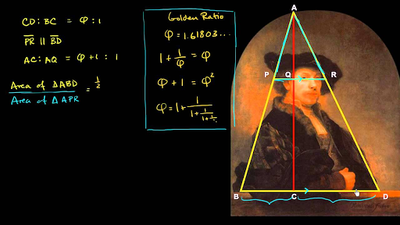 CD:BC = φ:1
PR || BD
AC:AQ = φ+1 : 1
Area of ΔABD
Area of ΔAPR
= 1/2
Golden Ratio
φ=1.61803...
1 + 1/φ = φ
φ + 1 = φ²
φ = 1 + 1/(1+1/(1+1/1+...
A
P Q R
B C D